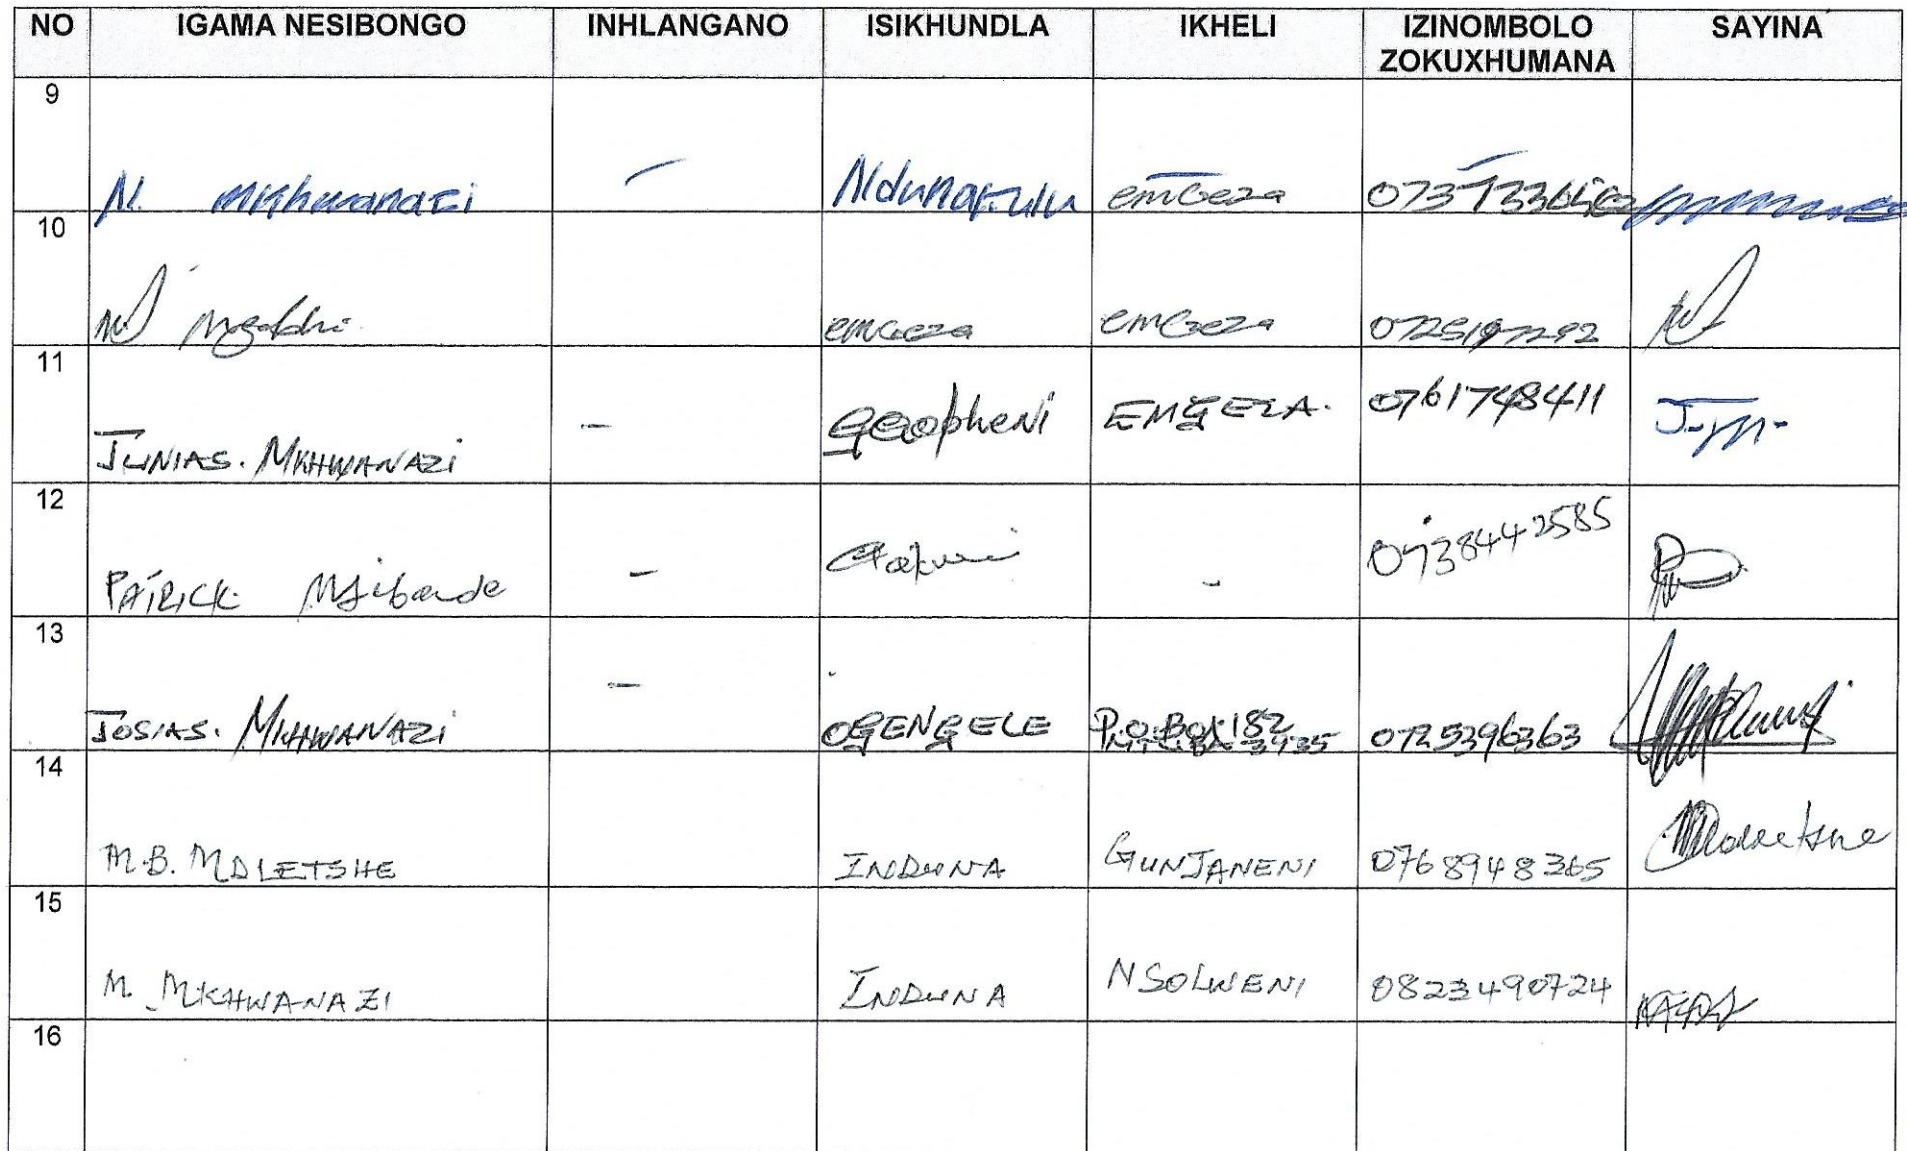 NO IGAMA NESIBONGO INHLANGANO ISIKHUNDLA IKHELI IZINOMBOLO ZOKUXHUMANA SAYINA
9
N. Mkhwanazi - Ndunankulu emGeza
10
emGeza emGeza
11
JUNIAS. MKHWANAZI - EMGEZA. 0761748411
12
PATRICK - - 0738442585
13
JOSIAS. MKHWANAZI - OGENGELE P.O. Box 182 0725396363
3935
14
M.B. MDLETSHE INDUNA GUNJANENI 0768948365
15
M. MKHWANAZI INDUNA NSOLWENI 0823490724
16